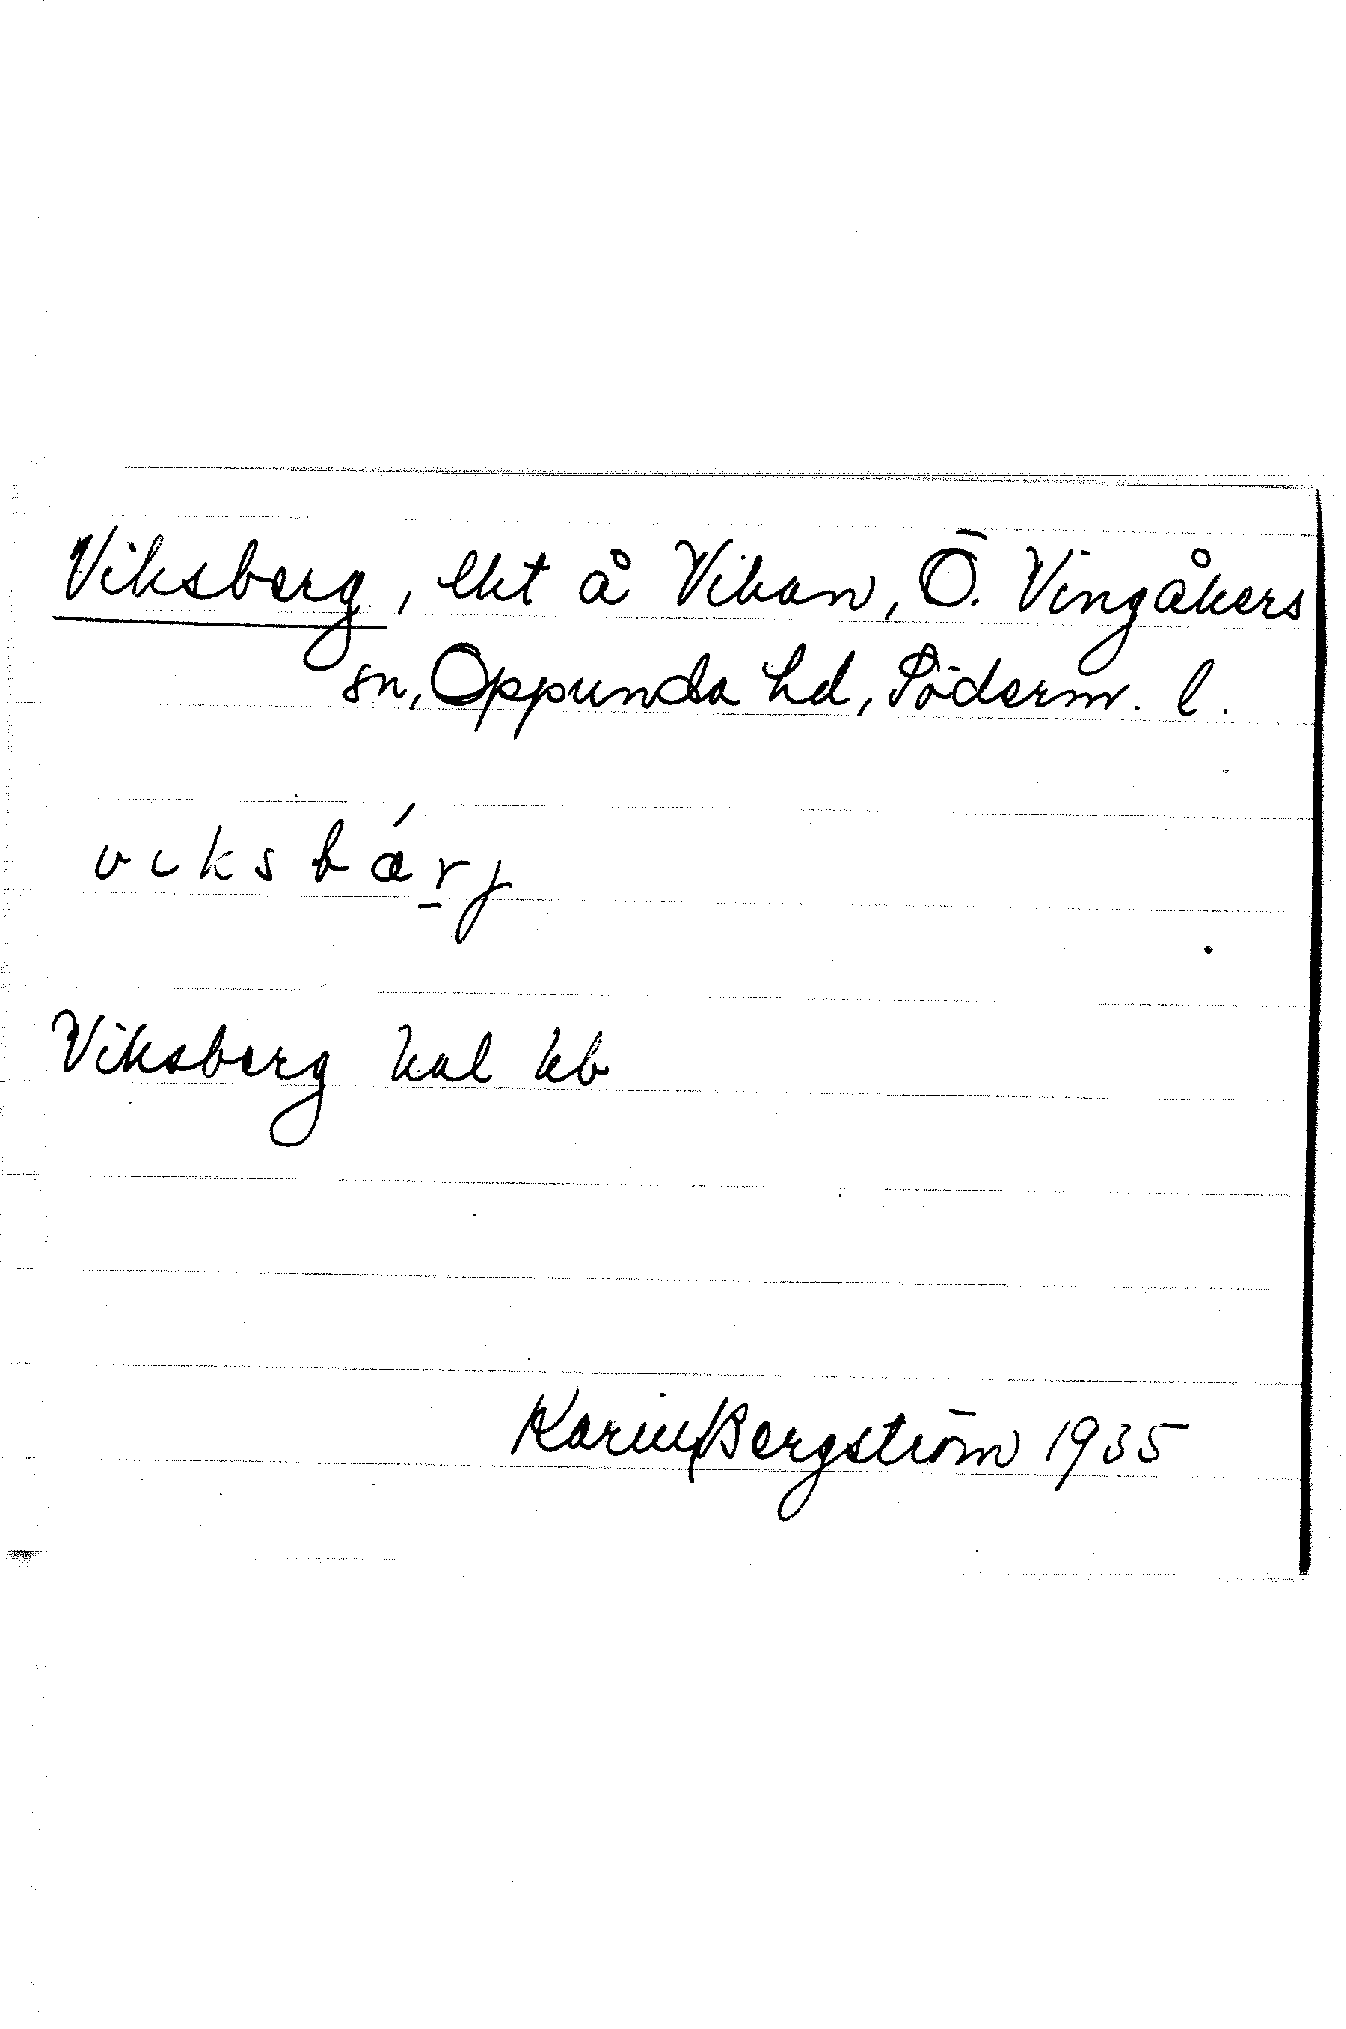 Viksberg, lht å Vikan, Ö. Vingåkers
sn, Oppunda hd, Söderm. l.
viksbárj
Viksberg kal kb
Karin Bergström 1935